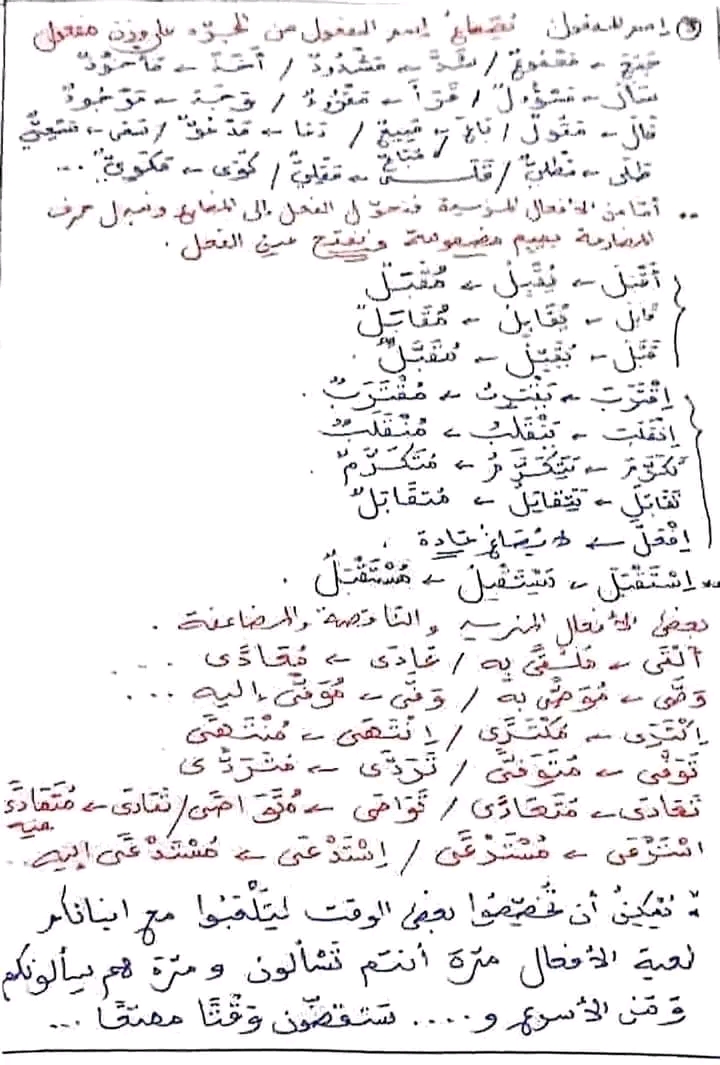 ③ إسم المفعول: يُصاغ إسم المفعول من المجرّد على وزن مفعول
جَمَعَ ← مَجْمُوعٌ / شَدَّ ← مَشْدُودٌ / أَخَذَ ← مَأْخُوذٌ
سَأَلَ ← مَسْؤُولٌ / قَرَأَ ← مَقْرُوءٌ / وَجَدَ ← مَوْجُودٌ
قَالَ ← مَقُولٌ / بَاعَ ← مَبِيعٌ / دَعَا ← مَدْعُوٌّ / سَعَى ← مَسْعِيٌّ
طَلَى ← مَطْلِيٌّ / قَلَى ← مَقْلِيٌّ / كَوَى ← مَكْوِيٌّ ...
•• أمّا من الأفعال المزيدة فنحوّل الفعل إلى المضارع ونبدل حرف
المضارعة بميم مضمومة ونفتح عين الفعل.
أَقْبَلَ ← يُقْبِلُ ← مُقْبَلٌ
قابل ← يُقَابِلُ ← مُقَابَلٌ
قَبَّلَ ← يُقَبِّلُ ← مُقَبَّلٌ.
إِقْتَرَبَ ← يَقْتَرِبُ ← مُقْتَرَبٌ.
إِنْقَلَبَ ← يَنْقَلِبُ ← مُنْقَلَبٌ
تَكَرَّمَ ← يَتَكَرَّمُ ← مُتَكَرَّمٌ.
تَقَابَلَ ← يَتَقَابَلُ ← مُتَقَابَلٌ
اِفْعَلَّ ← لا يُصَاغُ عَادة.
•• اِسْتَقْبَلَ ← يَسْتَقْبِلُ ← مُسْتَقْبَلٌ.
بعض الأفعال المزيدة والناقصة والمضاعفة.
أَلْقَى ← / عَادَى ← مُعَادًى ...
وَصَّى ← مُوَصًّى به / وَفَّى ← مُوَفًّى إليه ...
إِكْتَرَى ← مُكْتَرًى / إِنْتَهَى ← مُنْتَهًى
تَوَفَّى ← مُتَوَفًّى / تَرَدَّى ← مُتَرَدًّى
تَعَادَى ← مُتَعَادًى / تَوَاصَى ← مُتَوَاصًى / تَفَادَى ← مُتَفَادًى
منه
اِسْتَرْعَى ← مُسْتَرْعًى / إِسْتَدْعَى ← مُسْتَدْعًى إليه...
يُمْكِنُ أن تُخَصِّصُوا بعض الوقت لِتَلْعَبُوا مع ابنائكم
لعبة الأفعال مرّة أنتم تَسْألون ومرّة هم يسألونكم
وَمَن الأسرع و.... ستقضّون وَقْتًا ممتعًا ...